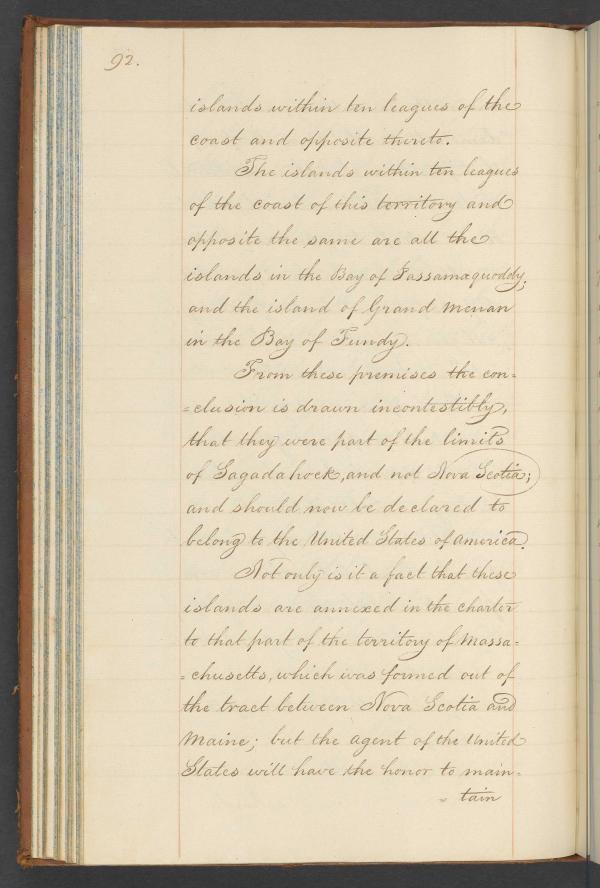 92.
islands within ten leagues of the
coast and opposite thereto.
The islands within ten leagues
of the coast of this territory and
opposite the same are all the
islands in the Bay of Passamaquoddy,
and the island of Grand Menan
in the Bay of Fundy.
From these premises the con=
=clusion is drawn incontestibly,
that they were part of the limits
of Sagadahock, and not Nova Scotia;
and should now be declared to
belong to the United States of America.
Not only is it a fact that these
islands are annexed in the charter
to that part of the territory of Massa=
=chusetts, which was formed out of
the tract between Nova Scotia and
Maine; but the agent of the United
States will have the honor to main=
=tain